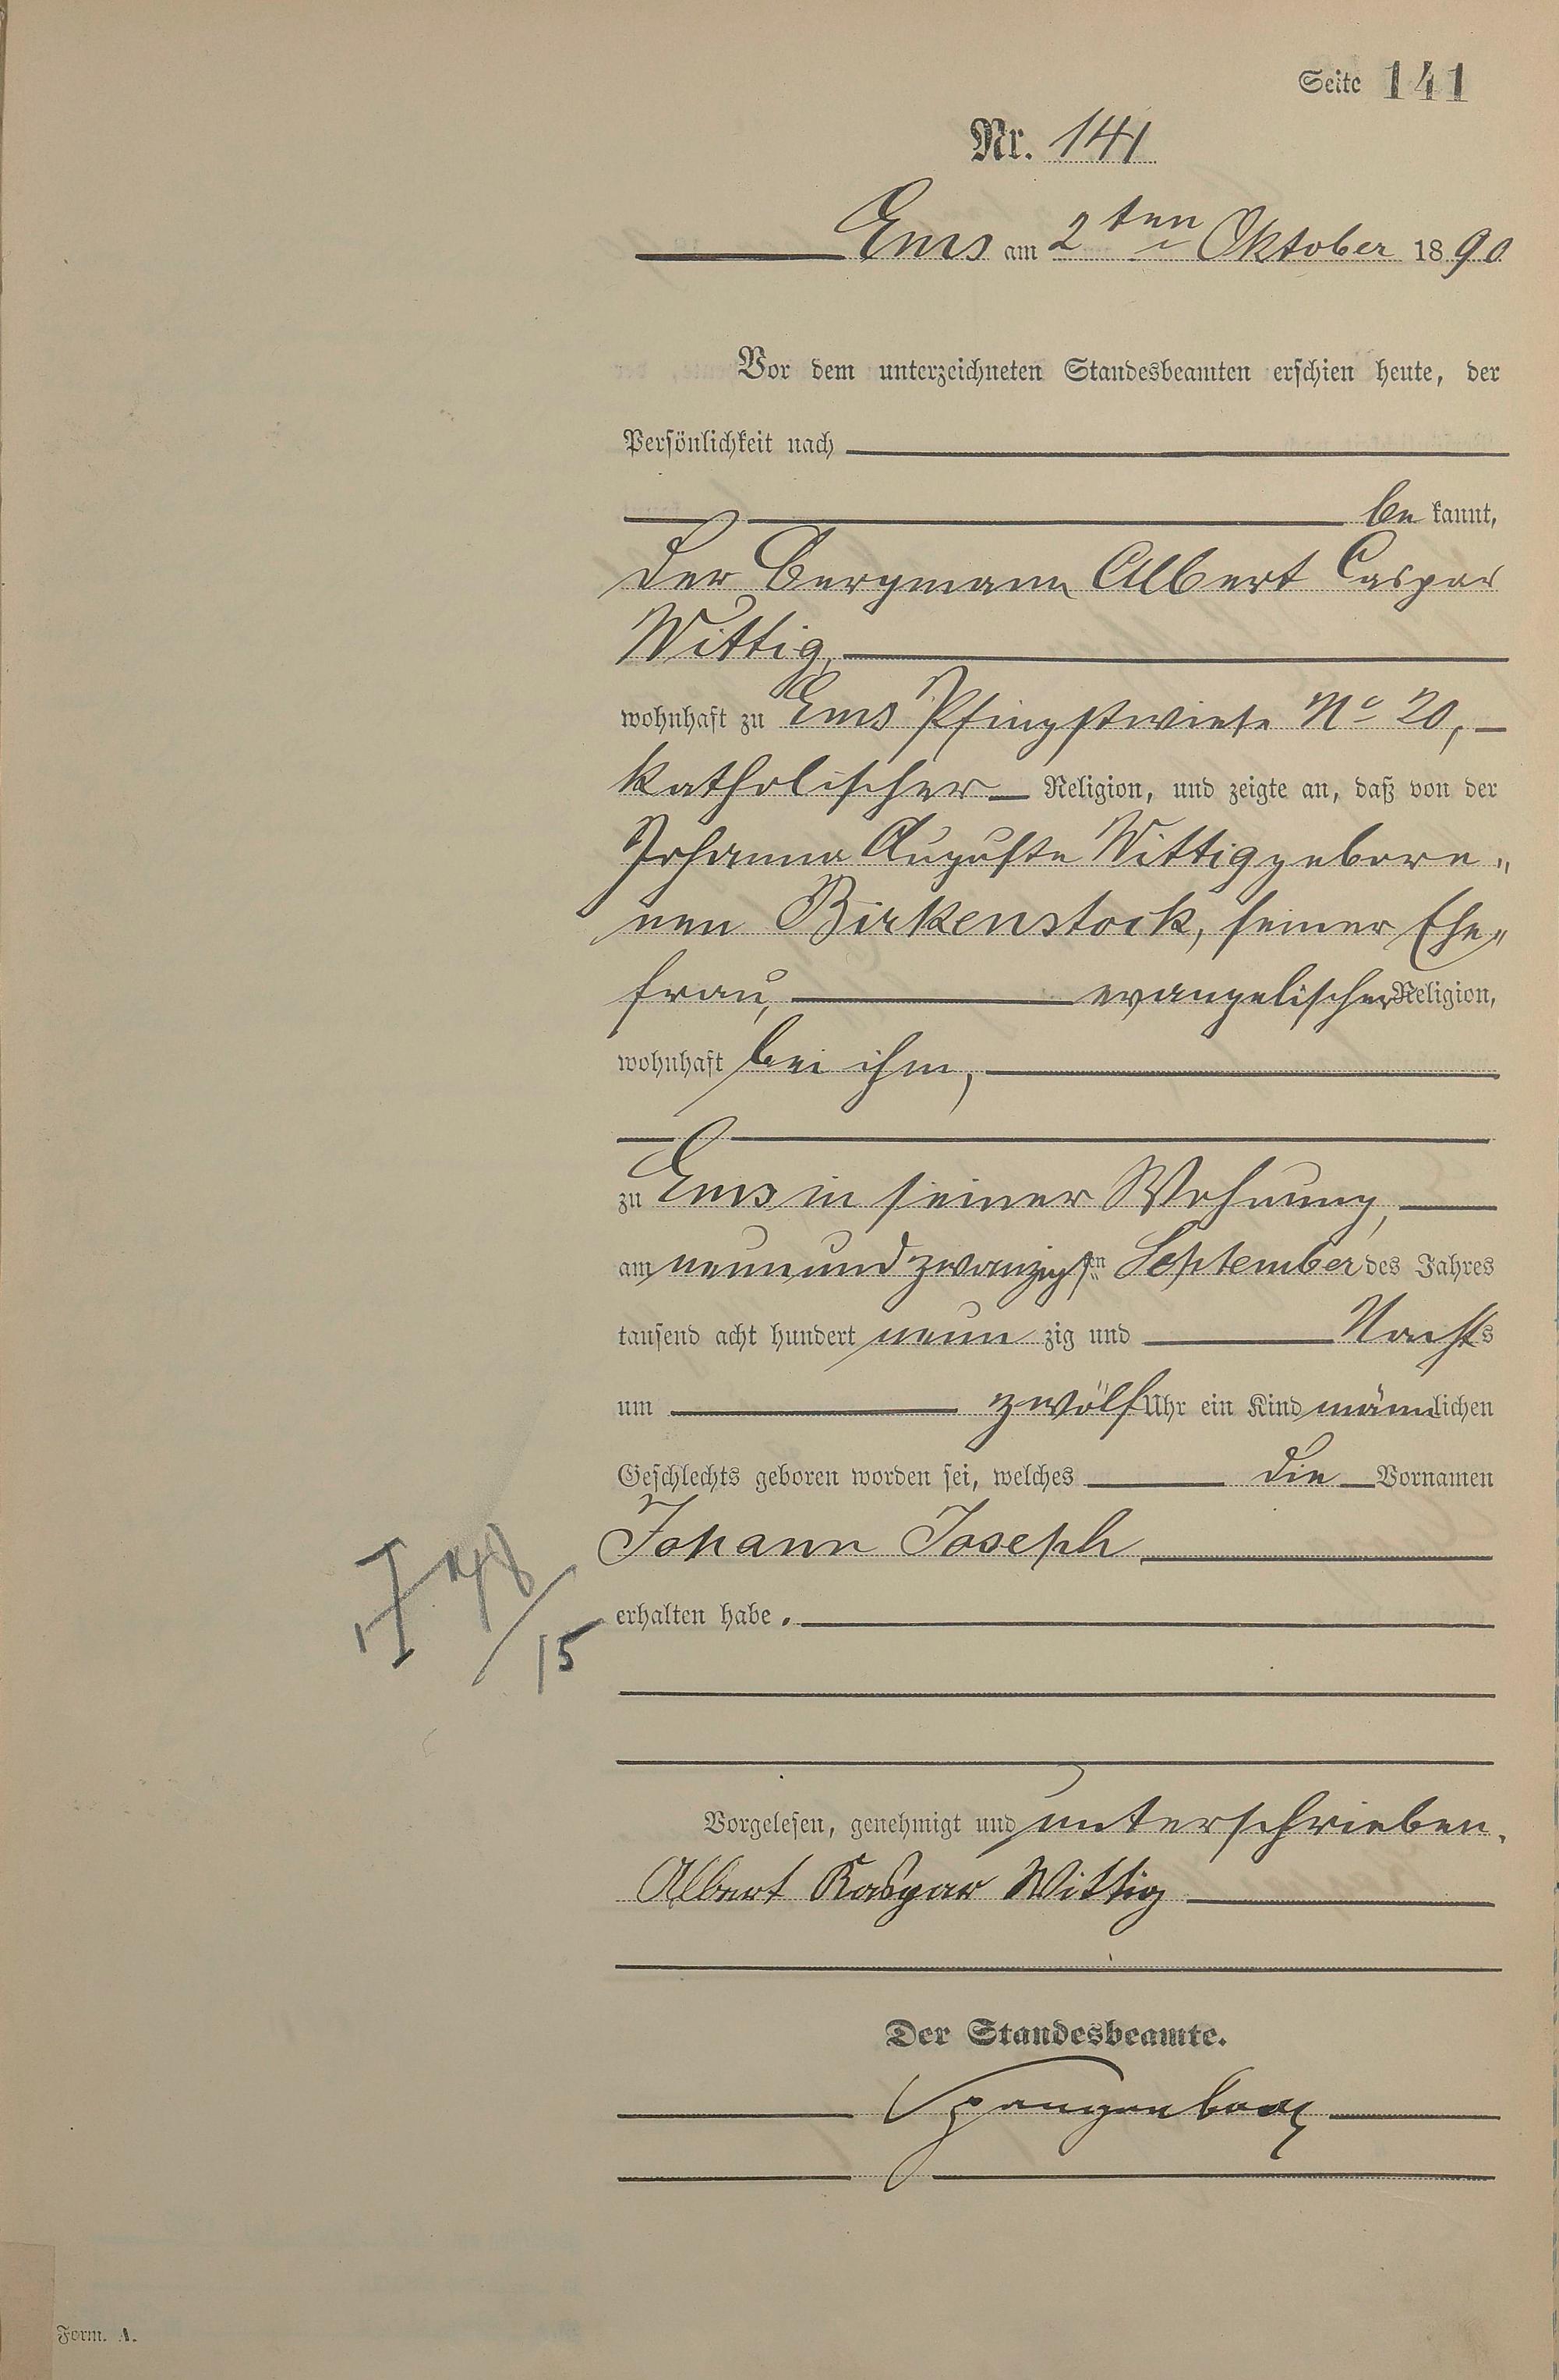 Seite 141
Nr. 141
Ems am 2ten Oktober 1890
Vor dem unterzeichneten Standesbeamten erschien heute, der
Persönlichkeit nach
be kannt,
der Bergmann Albert Caspar
Wittig,
wohnhaft zu Ems Pfingstwiese No 20,
katholischer Religion, und zeigte an, daß von der
Johanna Auguste Wittig gebore„
nen Birkenstock, seiner Ehe„
frau, evangelischer Religion,
wohnhaft bei ihm,
zu Ems in seiner Wohnung,
am neunundzwanzigsten September des Jahres
tausend acht hundert neun zig und Nachts
um zwölf Uhr ein Kind männlichen
Geschlechts geboren worden sei, welches die Vornamen
Johann Joseph
erhalten habe.
15
Vorgelesen, genehmigt und unterschrieben.
Albert Kaspar Wittig
Der Standesbeamte.
Form. A.